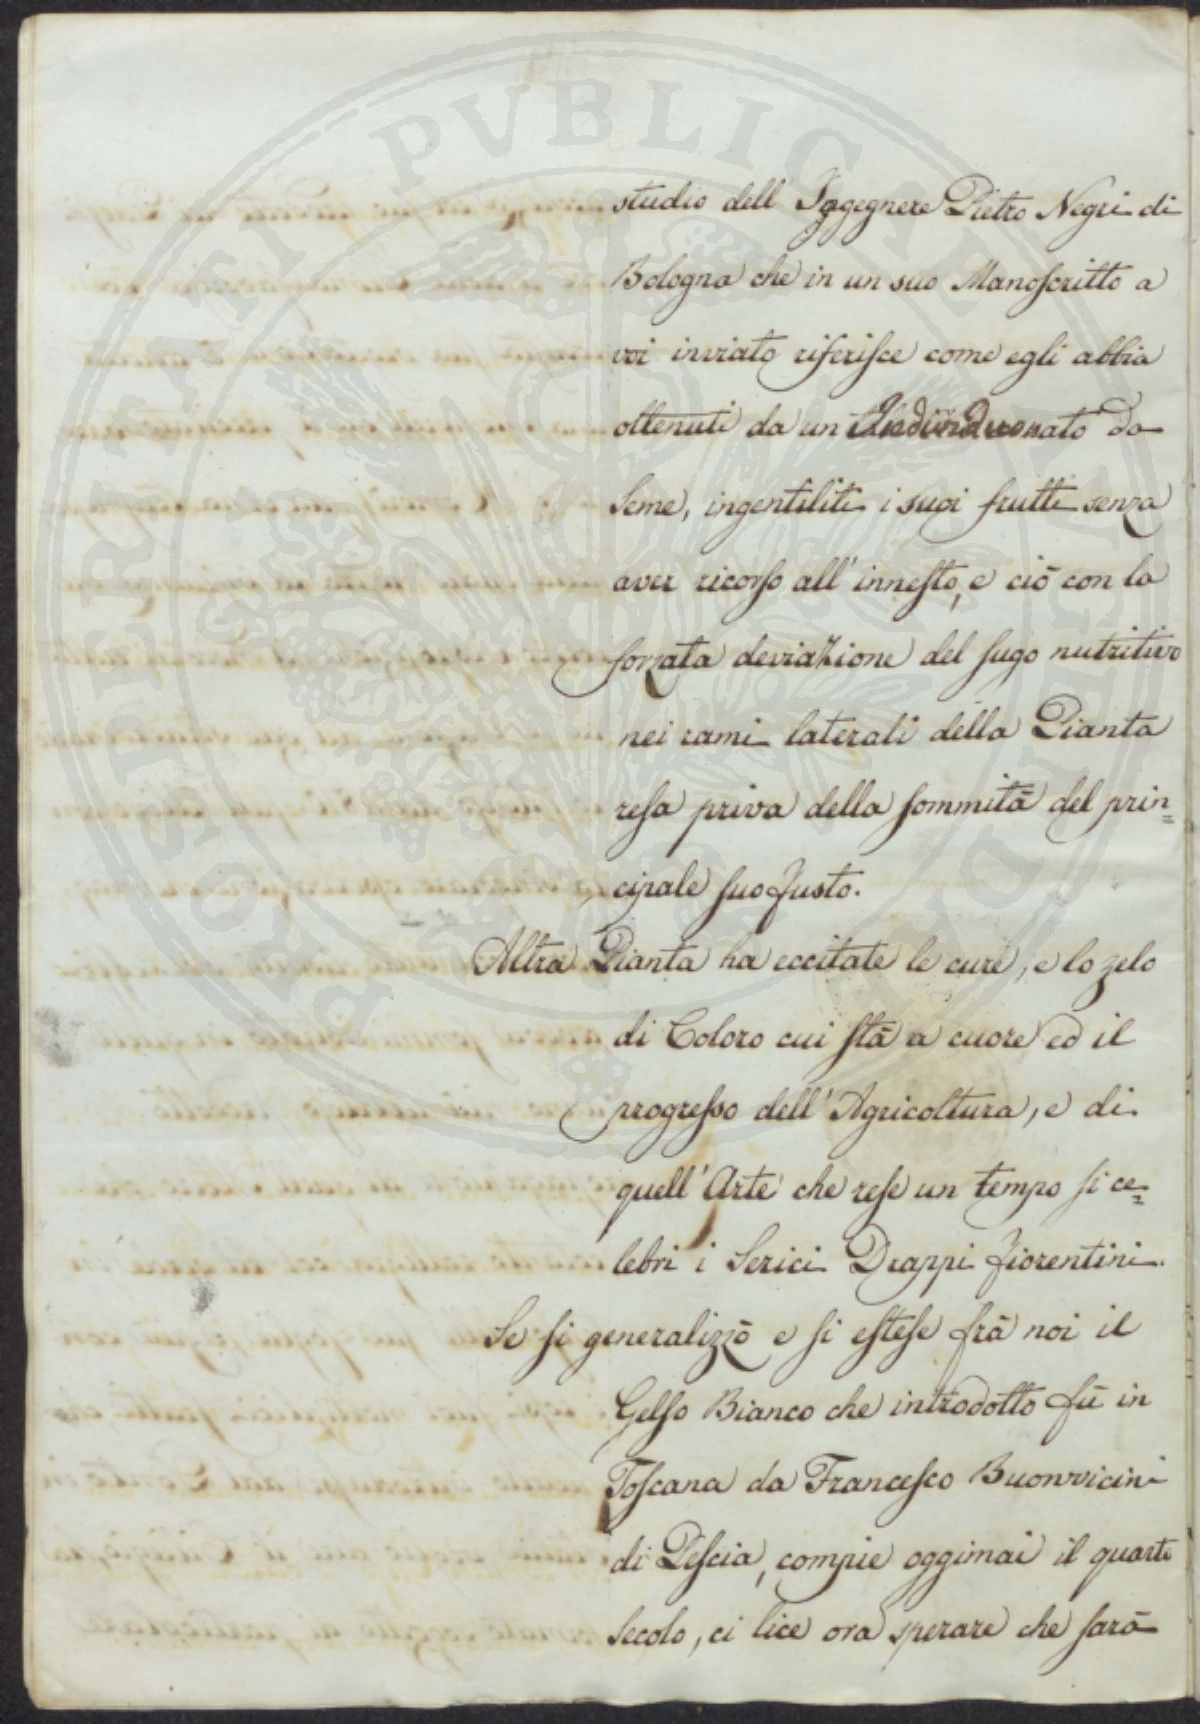 studio dell' Ingegnere Pietro Negri di
Bologna che in un suo Manoscritto a
voi inviato riferisce come egli abbia
ottenuti da un nato da
Seme, ingentiliti i suoi frutti senza
aver ricorso all' innesto, e ciò con la
forzata deviazione del sugo nutritivo
nei rami laterali della Pianta
resa priva della sommità del prin=
cipale suo fusto.
Altra Pianta ha eccitate le cure, e lo zelo
di Coloro cui stà a cuore ed il
progresso dell' Agricoltura, e di
quell' Arte che rese un tempo si ce=
lebri i Serici Drappi fiorentini.
Se si generalizzò e si estese frà noi il
Gelso Bianco che introdotto fù in
Toscana da Francesco Buonvicini
di Pescia, compie oggimai il quarto
Secolo, ci lice ora sperare che sarà
PROSPERITATI PVBLICAE AVGENDAE